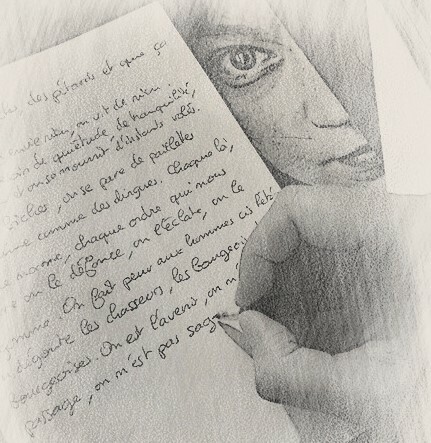 des pétards et que ça
on vit de rien
de quiétude, de tranquilité,
on se nourrit d'instants volés.
biches, on se pare de paillettes
comme des dingues. Chaque loi,
norme, chaque ordre qui nous
on le défonce, on l'éclate, on le
On fait peur aux hommes cis
dégoûte les chasseurs, les bourgeois
bourgeoises. On est l'avenir, on
passage, on n'est pas sag